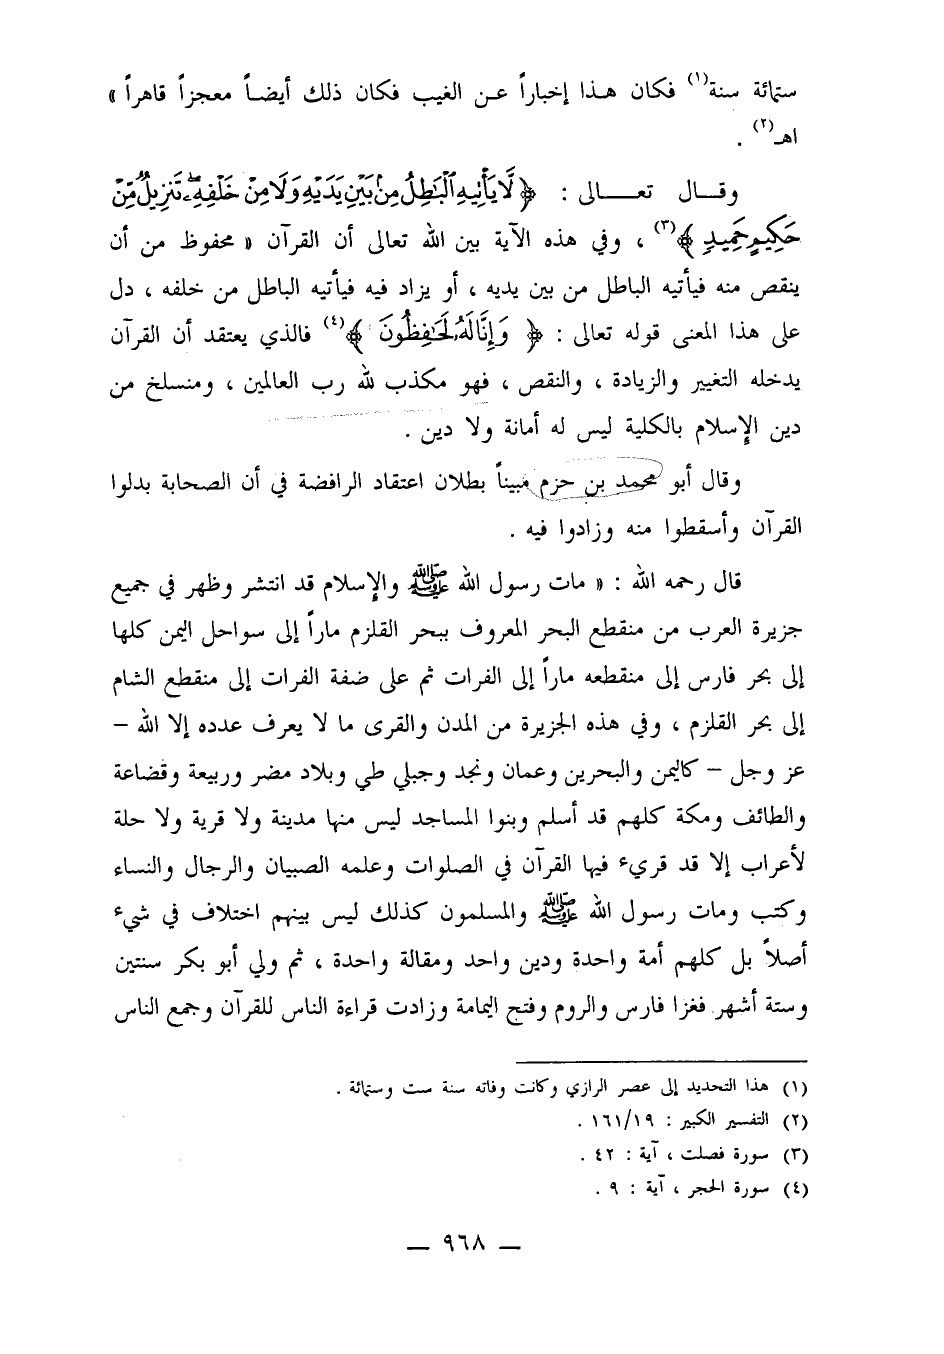 ستمائة سنة(١) فكان هذا إخباراً عن الغيب فكان ذلك أيضاً معجزاً قاهراً »
اهـ(٢) .
وقال تعالى : ﴿ لَّا يَأْتِيهِ ٱلْبَٰطِلُ مِنۢ بَيْنِ يَدَيْهِ وَلَا مِنْ خَلْفِهِۦ ۖ تَنزِيلٌ مِّنْ
حَكِيمٍ حَمِيدٍ ﴾(٣) ، وفي هذه الآية بين الله تعالى أن القرآن « محفوظ من أن
ينقص منه فيأتيه الباطل من بين يديه ، أو يزاد فيه فيأتيه الباطل من خلفه ، دل
على هذا المعنى قوله تعالى : ﴿ وَإِنَّا لَهُۥ لَحَٰفِظُونَ ﴾(٤) فالذي يعتقد أن القرآن
يدخله التغيير والزيادة ، والنقص ، فهو مكذب لله رب العالمين ، ومنسلخ من
دين الإسلام بالكلية ليس له أمانة ولا دين .
وقال أبو محمد بن حزم مبيناً بطلان اعتقاد الرافضة في أن الصحابة بدلوا
القرآن وأسقطوا منه وزادوا فيه .
قال رحمه الله : « مات رسول الله ﷺ والإسلام قد انتشر وظهر في جميع
جزيرة العرب من منقطع البحر المعروف ببحر القلزم ماراً إلى سواحل اليمن كلها
إلى بحر فارس إلى منقطعه ماراً إلى الفرات ثم على ضفة الفرات إلى منقطع الشام
إلى بحر القلزم ، وفي هذه الجزيرة من المدن والقرى ما لا يعرف عدده إلا الله –
عز وجل – كاليمن والبحرين وعمان ونجد وجبلي طي وبلاد مضر وربيعة وقضاعة
والطائف ومكة كلهم قد أسلم وبنوا المساجد ليس منها مدينة ولا قرية ولا حلة
لأعراب إلا قد قريء فيها القرآن في الصلوات وعلمه الصبيان والرجال والنساء
وكتب ومات رسول الله ﷺ والمسلمون كذلك ليس بينهم اختلاف في شيء
أصلاً بل كلهم أمة واحدة ودين واحد ومقالة واحدة ، ثم ولي أبو بكر سنتين
وستة أشهر فغزا فارس والروم وفتح اليمامة وزادت قراءة الناس للقرآن وجمع الناس
(١) هذا التحديد إلى عصر الرازي وكانت وفاته سنة ست وستمائة .
(٢) التفسير الكبير : ١٦١/١٩ .
(٣) سورة فصلت ، آية : ٤٢ .
(٤) سورة الحجر ، آية : ٩ .
— ٩٦٨ —